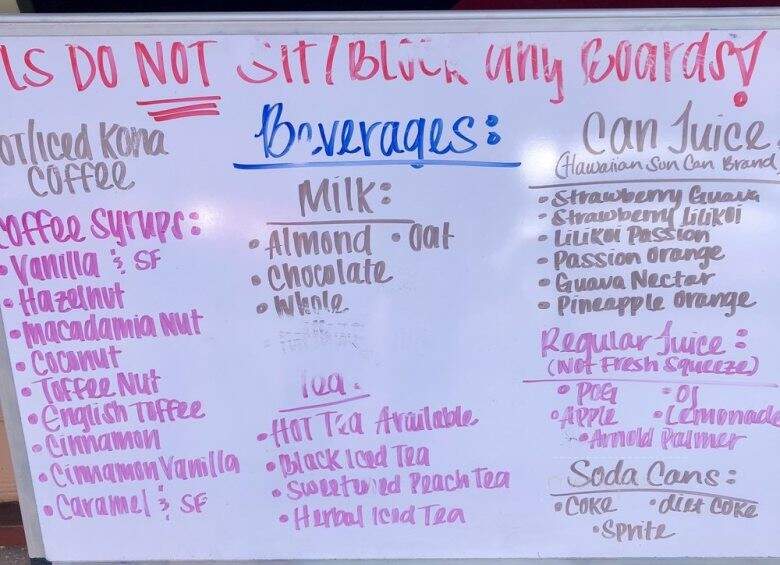 LS DO NOT Sit/Block any Boards!
OT/Iced Kona
COFFEE
Coffee Syrups:
• Vanilla & SF
• Hazelnut
• Macadamia Nut
• Coconut
• Toffee Nut
• English Toffee
• Cinnamon
• Cinnamon Vanilla
• Caramel & SF
Beverages:
Milk:
• Almond • Oat
• Chocolate
• Whole
Tea:
• HOT Tea Available
• Black Iced Tea
• Sweetened Peach Tea
• Herbal Iced Tea
Can Juice
(Hawaiian Sun Can Brand)
• Strawberry Guava
• Strawberry Lilikoi
• Lilikoi Passion
• Passion Orange
• Guava Nectar
• Pineapple Orange
Regular Juice:
(Not Fresh Squeeze)
• POG • OJ
• Apple • Lemonade
• Arnold Palmer
Soda Cans:
• Coke • Diet Coke
• Sprite